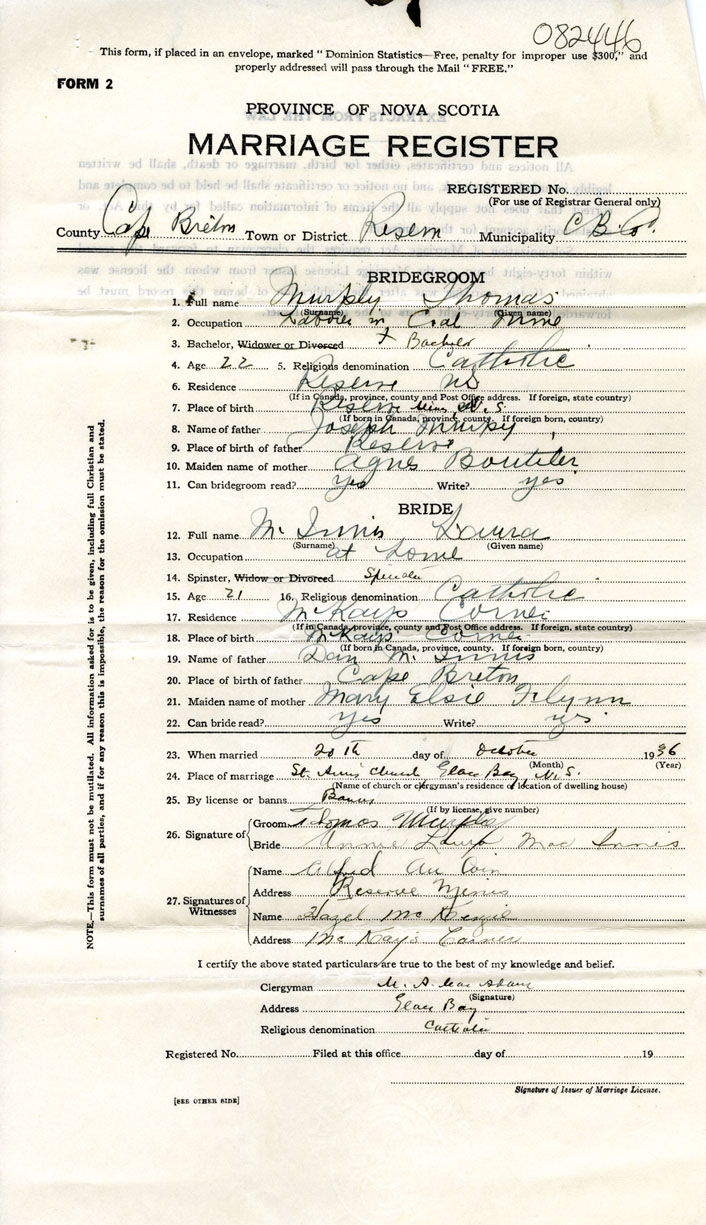 082446
This form, if placed in an envelope, marked "Dominion Statistics—Free, penalty for improper use $300," and
properly addressed will pass through the Mail "FREE."
FORM 2
PROVINCE OF NOVA SCOTIA
MARRIAGE REGISTER
REGISTERED No.
(For use of Registrar General only)
County Cape Breton Town or District Reserve Municipality C B Co.
BRIDEGROOM
1. Full name Murphy Thomas
(Surname) (Given name)
2. Occupation Laborer in Coal Mine
3. Bachelor, Widower or Divorced Bachelor
4. Age 22 5. Religious denomination Catholic
6. Residence Reserve NS
(If in Canada, province, county and Post Office address. If foreign, state country)
7. Place of birth Reserve Mines N.S.
(If born in Canada, province, county. If foreign born, country)
8. Name of father Joseph Murphy
9. Place of birth of father Reserve
10. Maiden name of mother Agnes Boutilier
11. Can bridegroom read? yes Write? yes
BRIDE
12. Full name Mc Innis Laura
(Surname) (Given name)
13. Occupation at home
14. Spinster, Widow or Divorced Spinster
15. Age 21 16. Religious denomination Catholic
17. Residence McKays Corner
(If in Canada, province, county and Post Office address. If foreign, state country)
18. Place of birth McKays Corner
(If born in Canada, province, county. If foreign born, country)
19. Name of father Dan Mc Innis
20. Place of birth of father Cape Breton
21. Maiden name of mother Mary Elsie Flynn
22. Can bride read? yes Write? yes
23. When married 20th day of October 1936
(Month) (Year)
24. Place of marriage St. Ann's Church Glace Bay, N.S.
(Name of church or clergyman's residence or location of dwelling house)
25. By license or banns Banns
(If by license, give number)
26. Signature of
Groom Thomas Murphy
Bride Annie Laura Mac Innis
27. Signatures of Witnesses
Name Alfred Au Coin
Address Reserve Mines
Name Hazel Mc Kenzie
Address Mc Kay's Corner
I certify the above stated particulars are true to the best of my knowledge and belief.
Clergyman M. A. Mac Adam
(Signature)
Address Glace Bay
Religious denomination Catholic
Registered No. Filed at this office day of 19
Signature of Issuer of Marriage License.
[SEE OTHER SIDE]
NOTE.—This form must not be mutilated. All information asked for is to be given, including full Christian and
surnames of all parties, and if for any reason this is impossible, the reason for the omission must be stated.